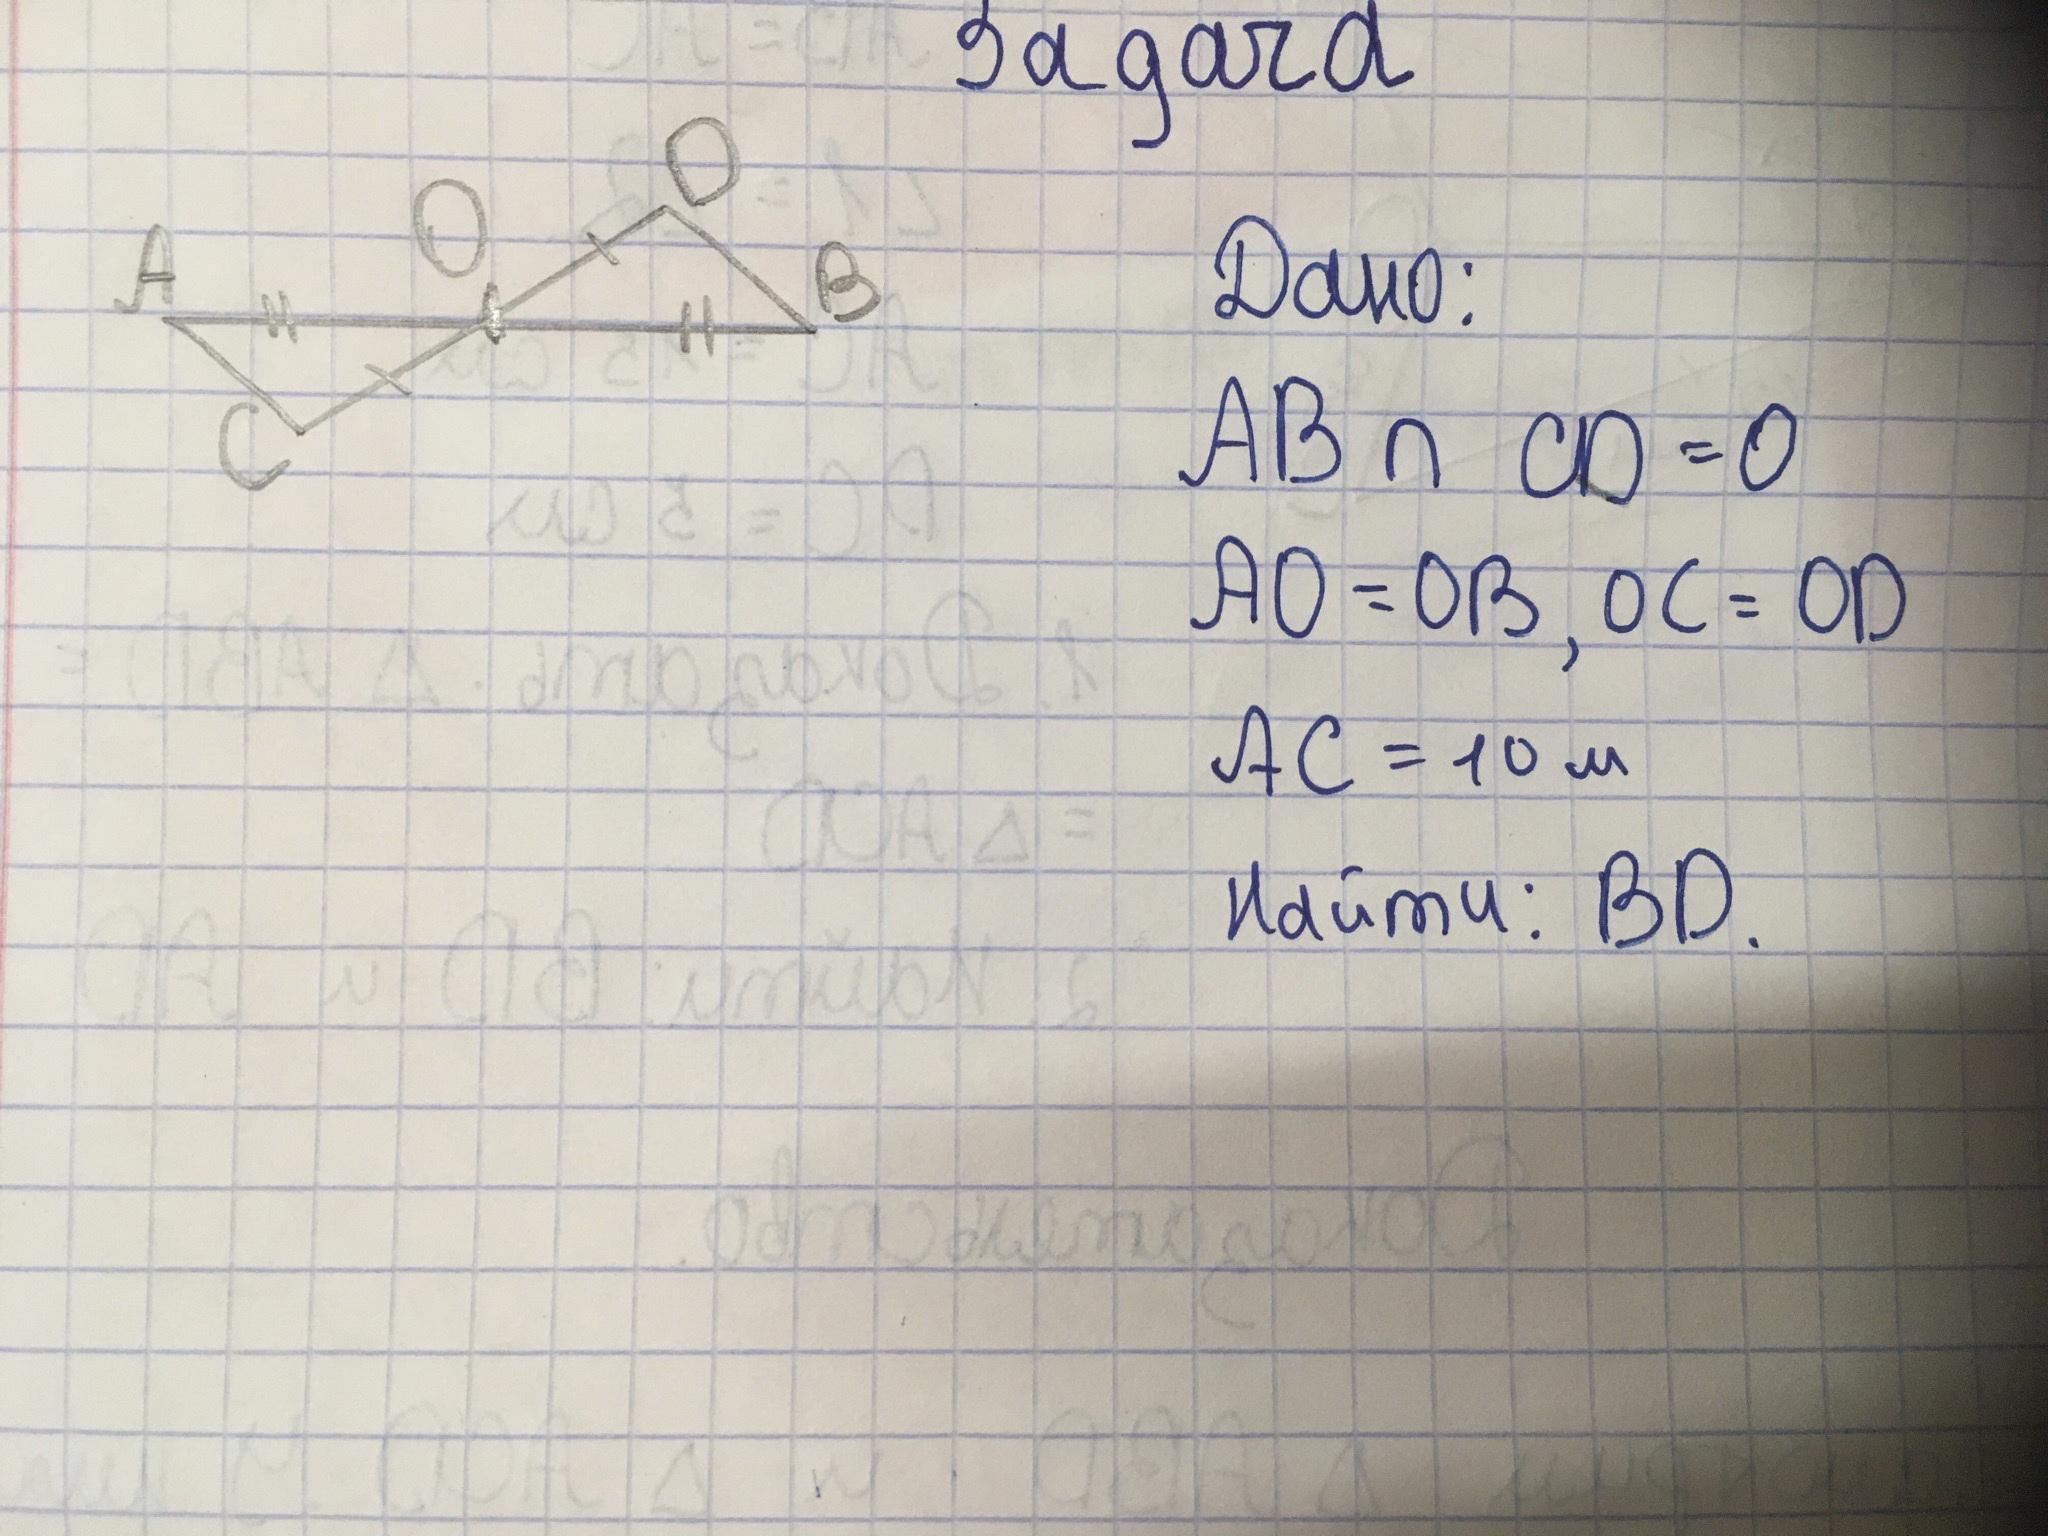 Задача
A
O
D
B
C
Дано:
AB ∩ CD = O
AO = OB, OC = OD
AC = 10 м
Найти: BD.